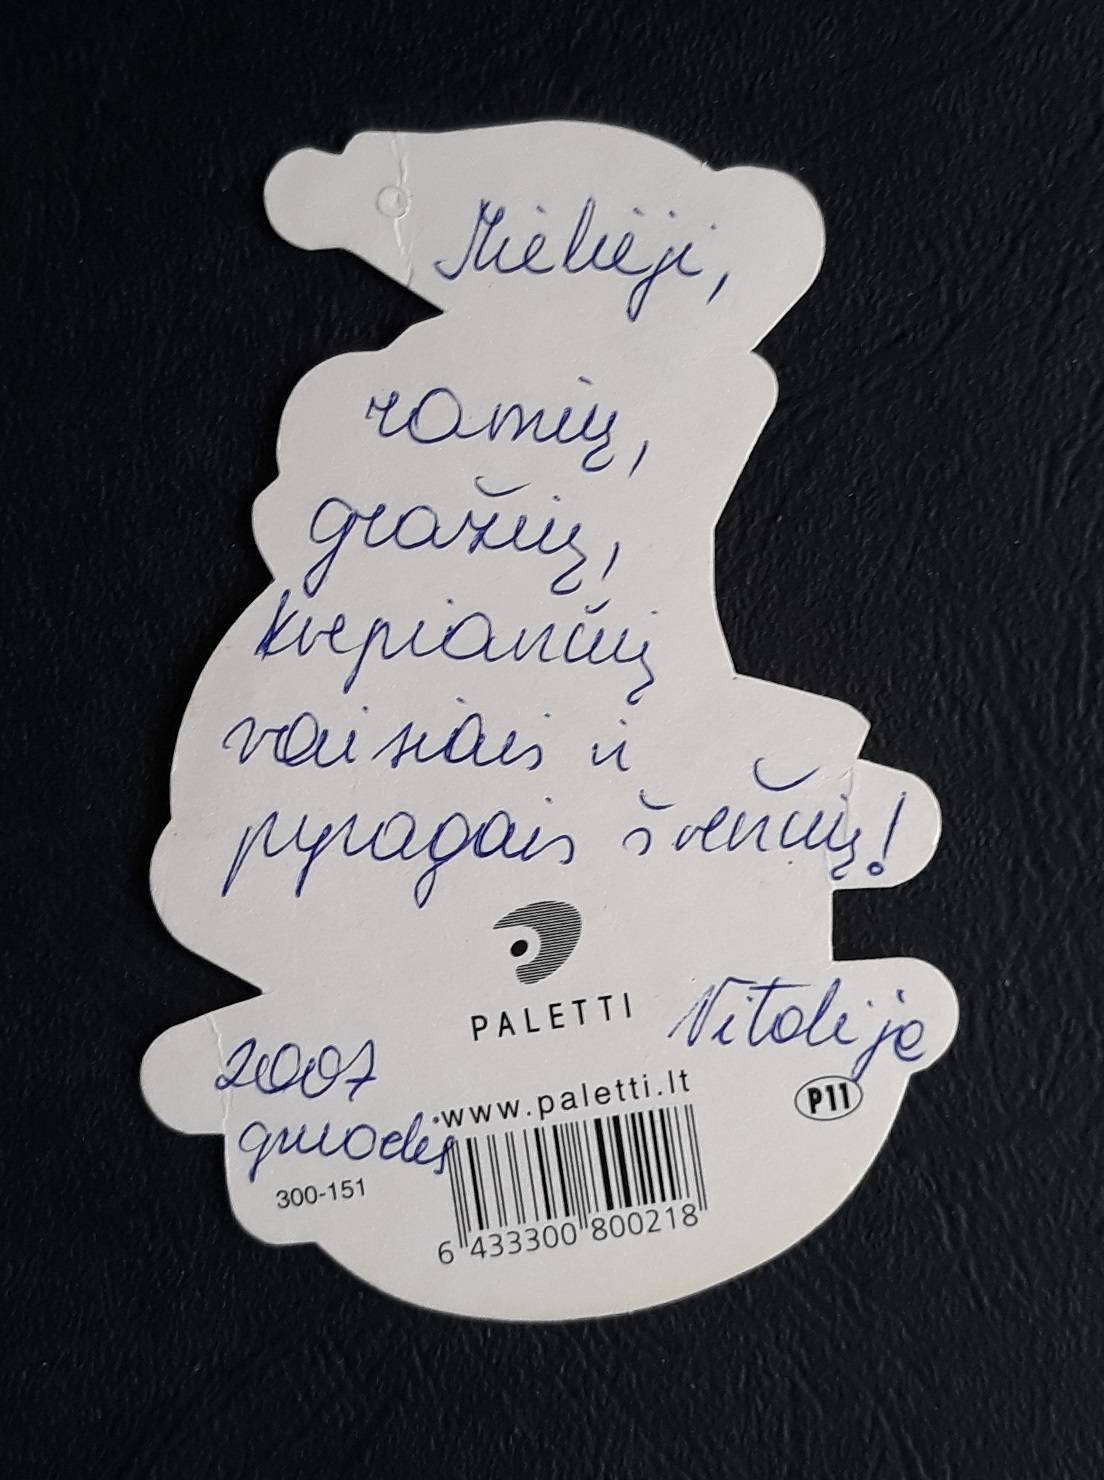 Mielieji,
ramių,
gražių,
kvepiančių
vaisiais ir
pyragais švenčių!
PALETTI
Vitalija
2007
gruodis
www.paletti.lt
P11
300-151
6 433300 800218